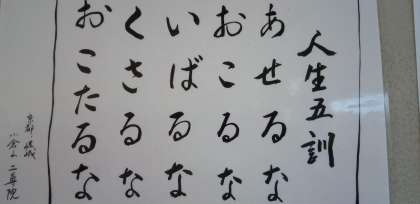 人生五訓
あせるな
おこるな
いばるな
くさるな
おこたるな
京都 嵯峨
小倉山 二尊院